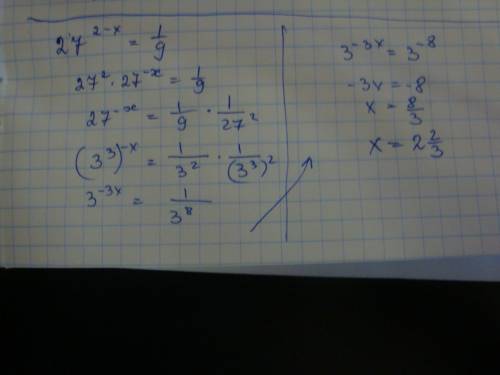 27^{2-x} = \frac{1}{9}
27^2 \cdot 27^{-x} = \frac{1}{9}
27^{-x} = \frac{1}{9} \cdot \frac{1}{27^2}
(3^3)^{-x} = \frac{1}{3^2} \cdot \frac{1}{(3^3)^2}
3^{-3x} = \frac{1}{3^8}
3^{-3x} = 3^{-8}
-3x = -8
x = \frac{8}{3}
x = 2\frac{2}{3}